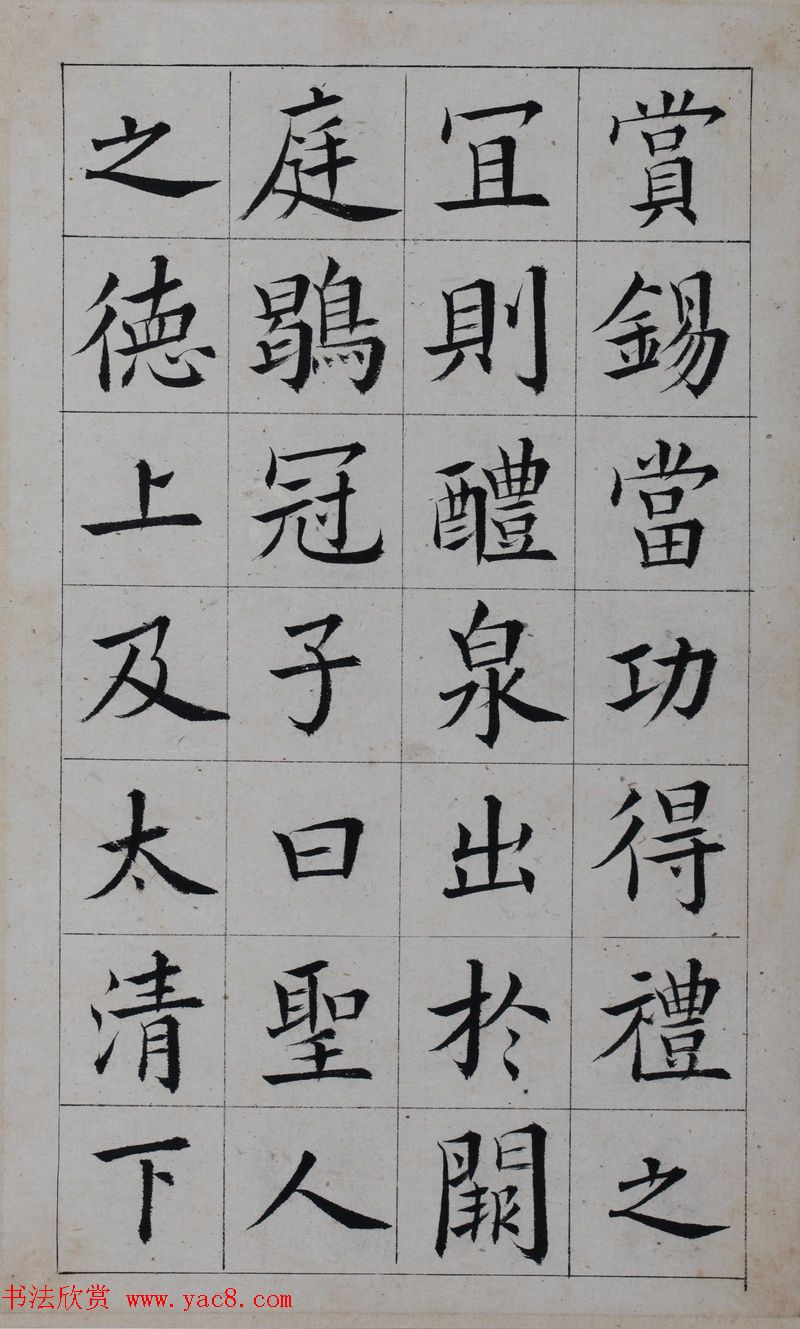 賞錫當功得禮之
冝則醴泉出於闕
庭鶡冠子曰聖人
之徳上及太清下
书法欣赏 www.yac8.com